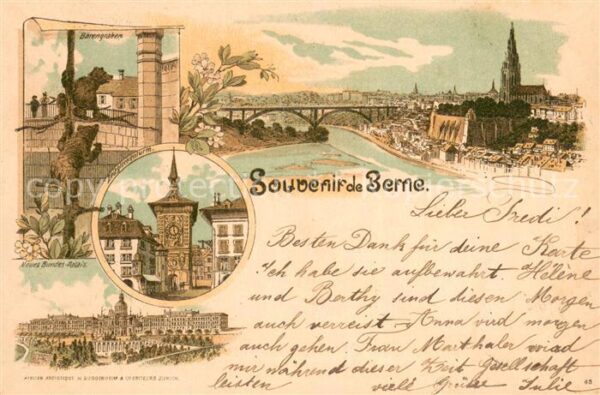 Bärengraben
Souvenir de Berne.
Neues Bundes-Palais.
Lieber Fredi!
Besten Dank für deine Karte
Ich habe sie aufbewahrt. Hélène
und Berthy sind diesen Morgen
auch verreist Anna wird morgen
auch gehen. Frau Marthaler wird
mir während dieser Zeit Gesellschaft
leisten viele Grüße Julie
ATELIER ARTISTIQUE H. GUGGENHEIM & ZÜRICH.